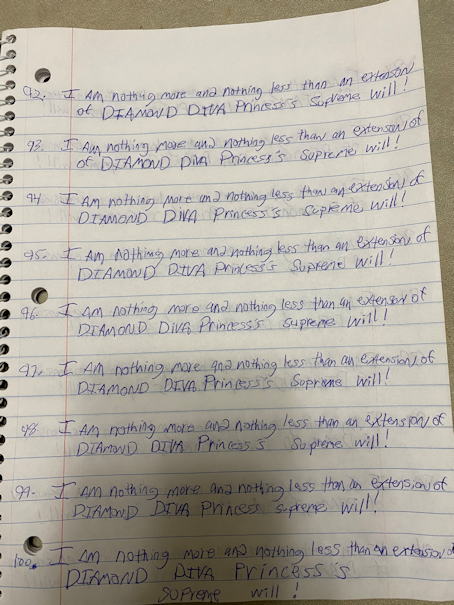 92. I AM nothing more and nothing less than an extension
of DIAMOND DIVA Princess's Supreme will!
93. I AM nothing more and nothing less than an extension of
of DIAMOND DIVA Princess's Supreme will!
94. I AM nothing more and nothing less than an extension of
DIAMOND DIVA Princess's Supreme will!
95. I AM nothing more and nothing less than an extension of
DIAMOND DIVA Princess's Supreme will!
96. I AM nothing more and nothing less than an extension of
DIAMOND DIVA Princess's Supreme will!
97. I AM nothing more and nothing less than an extension of
DIAMOND DIVA Princess's Supreme will!
98. I AM nothing more and nothing less than an extension of
DIAMOND DIVA Princess's Supreme will!
99. I AM nothing more and nothing less than an extension of
DIAMOND DIVA Princess's Supreme will!
100. I AM nothing more and nothing less than an extension of
DIAMOND DIVA Princess's
Supreme will!